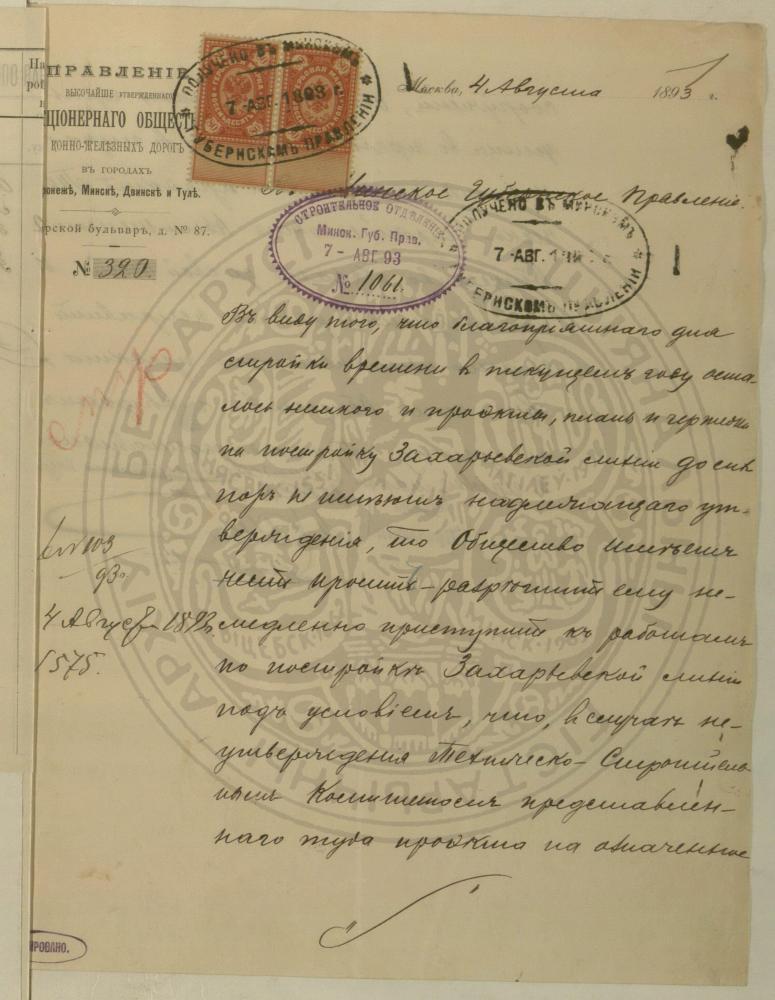 ПРАВЛЕНІЕ
ВЫСОЧАЙШЕ УТВЕРЖДЕННАГО
ЦІОНЕРНАГО ОБЩЕСТ
КОННО-ЖЕЛѢЗНЫХЪ ДОРОГЪ
ВЪ ГОРОДАХЪ
ронежѣ, Минскѣ, Двинскѣ и Тулѣ.
рской бульваръ, д. № 87.
№ 320.
ПОЛУЧЕНО ВЪ МИНСКОМЪ
7 - АВГ. 1893 г.
ГУБЕРНСКОМЪ ПРАВЛЕНІИ
Москва, 4 Августа 1893 г.
Минское Губернское Правленіе.
СТРОИТЕЛЬНОЕ ОТДѢЛЕНІЕ
Минск. Губ. Прав.
7 - АВГ 93
№ 1061.
ПОЛУЧЕНО ВЪ МИНСКОМЪ
7 - АВГ.
ГУБЕРНСКОМЪ ПРАВЛЕНІИ
Въ виду того, что благопріятнаго для
стройки времени в текущемъ году оста-
лось немного и проэкты, планы и чертежи
на постройку Захарьевской линіи до сихъ
поръ не имѣютъ надлежащаго ут-
вержденія, то Общество имѣетъ
честь просить разрѣшить ему не-
медленно приступить къ работамъ
по постройкѣ Захарьевской линіи
подъ условіемъ, что, въ случаѣ не-
утвержденія Техническо-Строитель-
нымъ Комитетомъ представлен-
наго туда проэкта на означенное
стр
103
93
4 Августа 1893
1575.
РОВАНО.